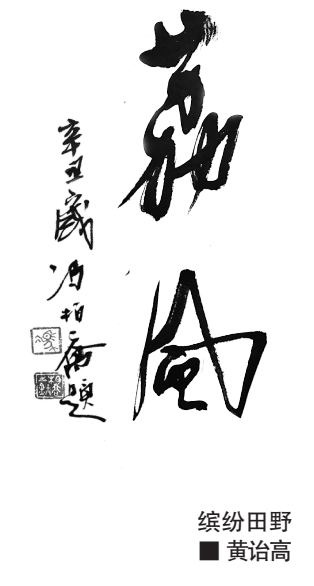 荔风
辛丑歲冯柏乔題
缤纷田野
■ 黄诒高